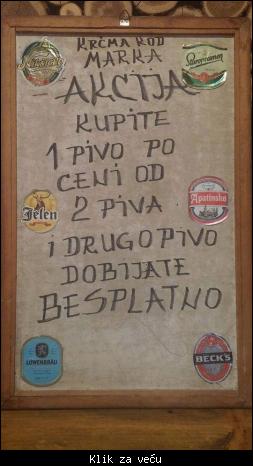 KRČMA KOD
MARKA
AKCIJA
KUPITE
1 PIVO PO
CENI OD
2 PIVA
I DRUGO PIVO
DOBIJATE
BESPLATNO
Staropramen
Jelen
Apatinsko
LÖWENBRÄU
BECK'S
Klik za veću